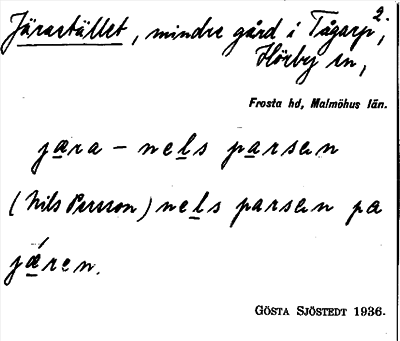 Järastället, mindre gård i Tågarp 2.,
Hörby sn,
Frosta hd, Malmöhus län.
jæra – nels parsen
(Nils Persson) nels parsen pa
jǽren.
GÖSTA SJÖSTEDT 1936.